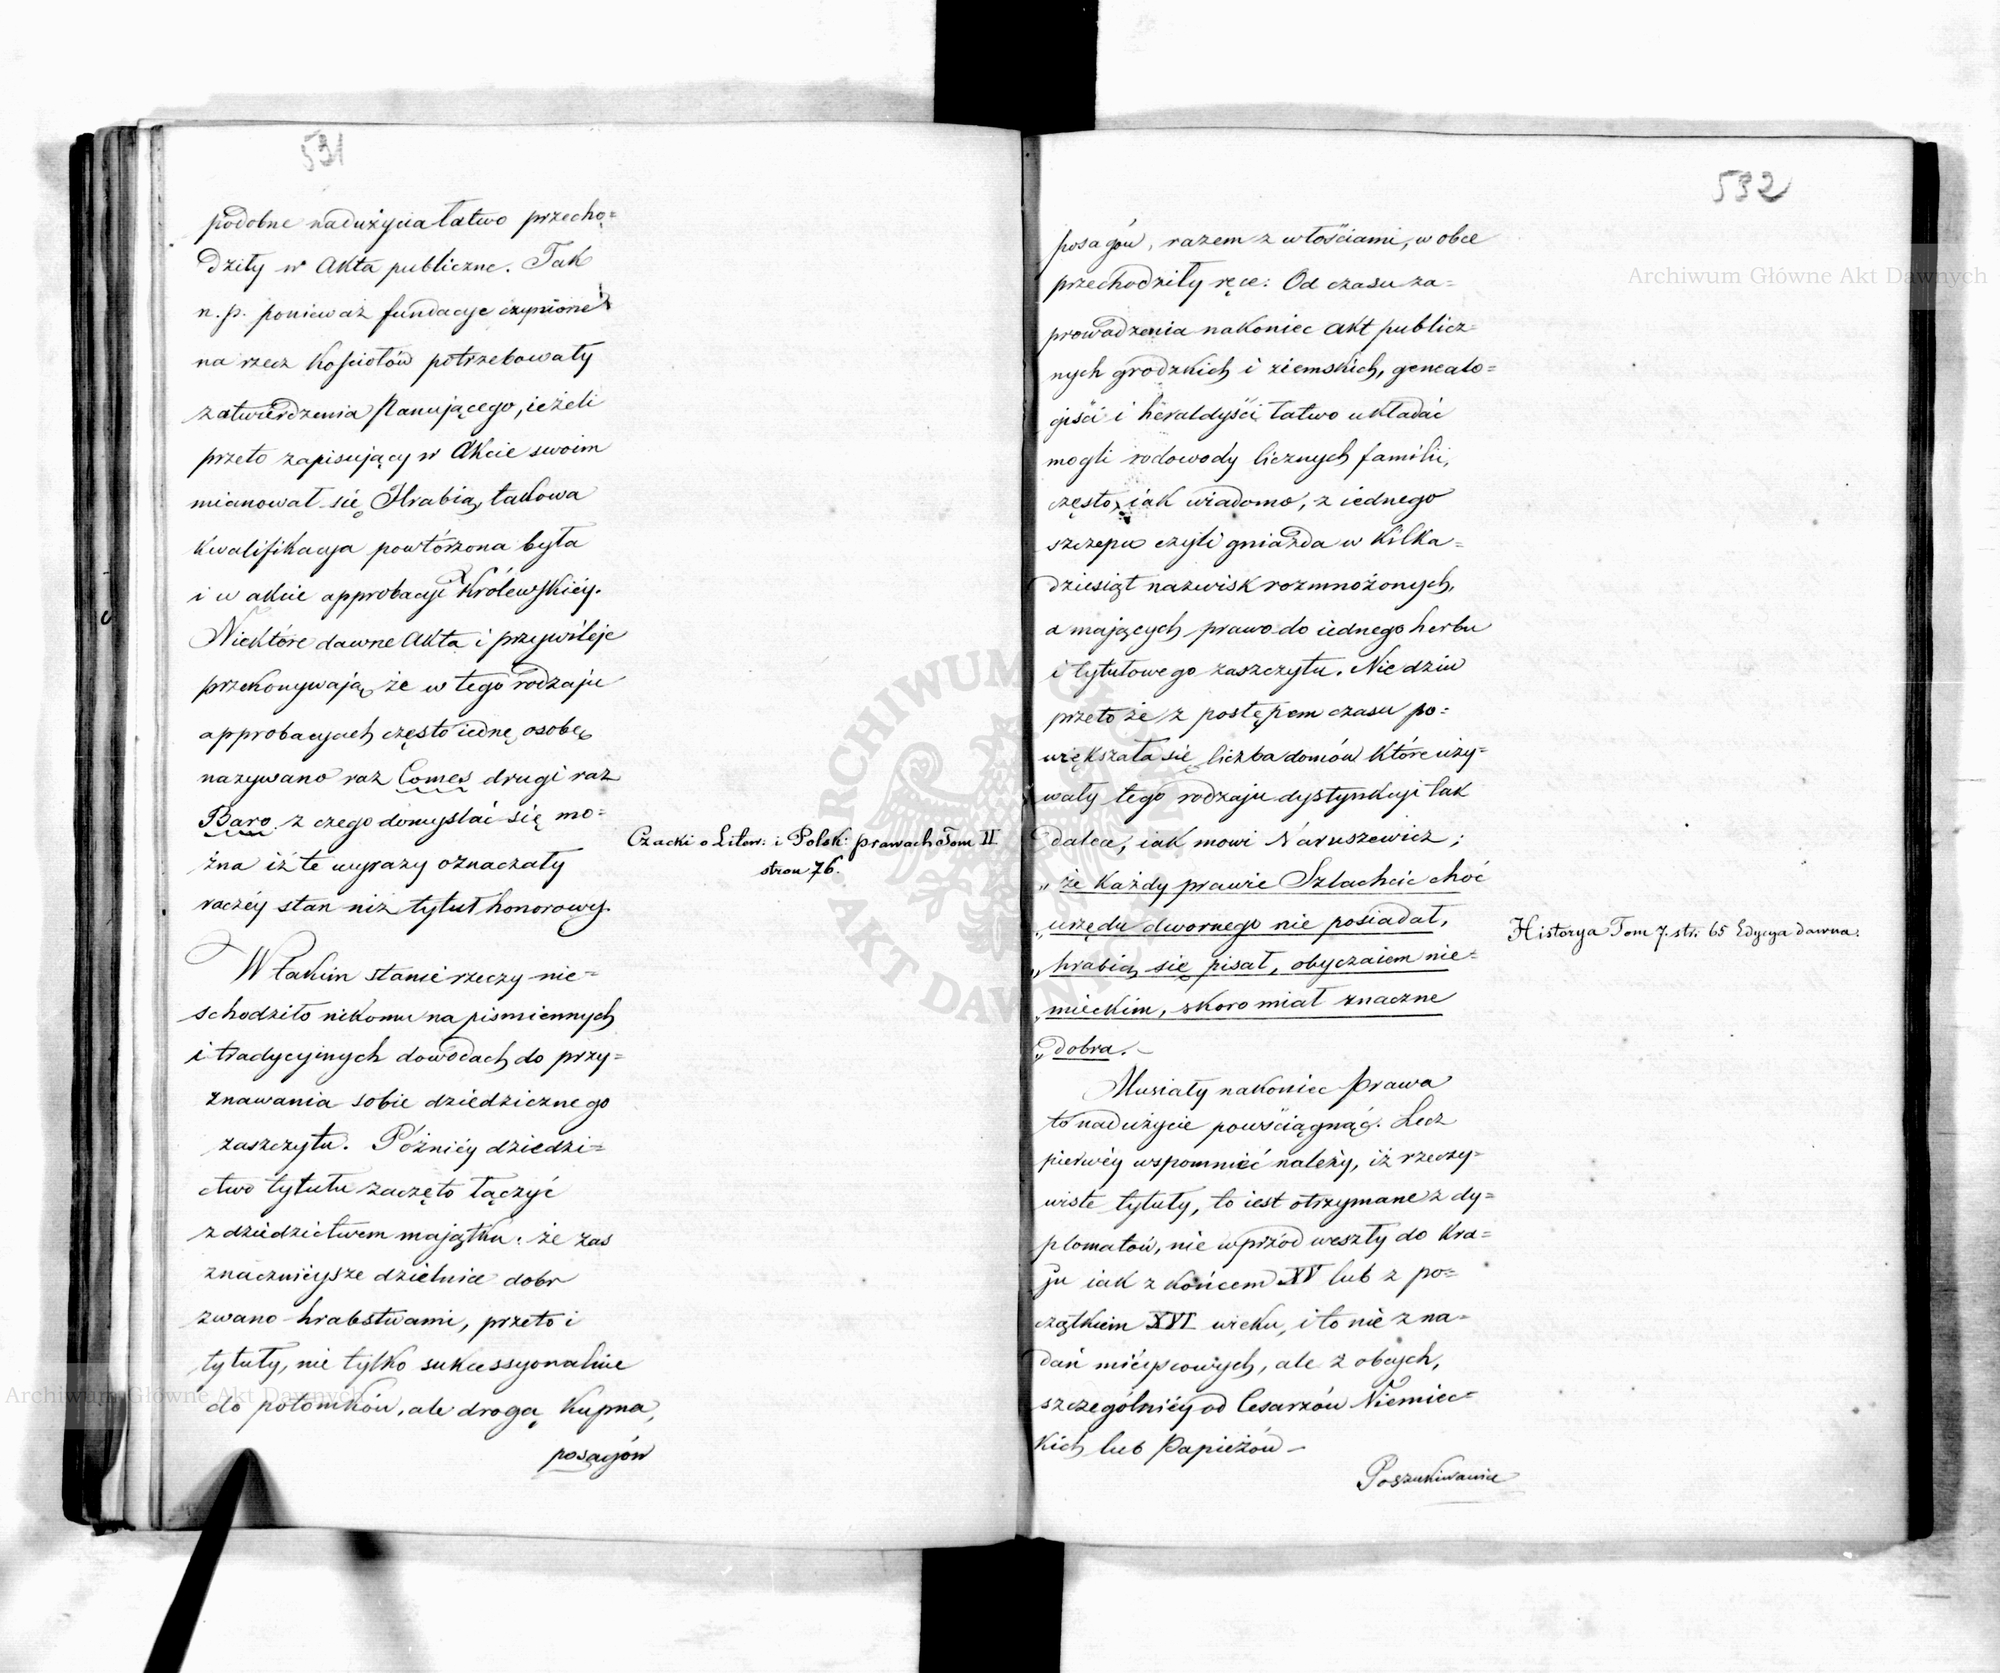 531
podobne nadużycia łatwo przecho=
dziły w Akta publiczne. Tak
n.p. ponieważ fundacye czynione
na rzecz Kościołów potrzebowały
zatwierdzenia Panującego, ieżeli
przeto zapisujący w Akcie swoim
mianował się Hrabią, takowa
kwalifikacya powtórzona była
i w akcie approbacyi Królewskiéy.
Niektóre dawne Akta i przywileje
przekonywają że w tego rodzaju
approbacyach często iednę osobę
nazywano raz Comes drugi raz
Baro, z czego domyślać się mo=
żna iż te wyrazy oznaczały
raczéy stan niż tytuł honorowy.
Czacki o Litew: i Polsk: prawach Tom II
stron 76.
W takim stanie rzeczy nie=
schodziło nikomu na pismiennych
i tradycyinych dowodach do przy=
znawania sobie dziedzicznego
zaszczytu. Późniéy dziedzi=
ctwo tytułu zaczęto łączyć
z dziedzictwem majątku. że zas
znacznieysze dzielnice dobr
zwano hrabstwami, przeto i
tytuły, nie tylko sukcessyonalnie
do potomków, ale drogą Kupna,
posagów
532
posagów, razem z włościami, w obce
przechodziły ręce: Od czasu za=
prowadzenia nakoniec akt publicz=
nych grodzkich i ziemskich, genealo=
giści i heraldyści łatwo układać
mogli rodowody licznych familii,
często, iak wiadomo, z iednego
szczepu czyli gniazda w Kilka=
dziesiąt nazwisk rozmnożonych,
a mających prawo do iednego herbu
i tytułowego zaszczytu. Nie dziw
przeto że z postępem czasu po=
większała się liczba domów Które uży=
wały tego rodzaju dystynkcyi tak
dalece, iak mowi Naruszewicz;
„że Każdy prawie Szlachcic choć
„urzędu dwornego nie posiadał,
„hrabią się pisał, obyczaiem nie=
„mieckim, skoro miał znaczne
„dobra.—
Historya Tom 7. str. 65 Edycya dawna.
Musiały nakoniec Prawa
to nadużycie powściągnąć. Lecz
pierwéy wspomnieć należy, iż rzeczy=
wiste tytuły, to iest otrzymane z dy=
plomatów, nie wprzód weszły do Kra=
ju iak z końcem XV lub z po=
czątkiem XVI wieku, i to nie z na=
dań mieyscowych, ale z obcych,
szczególniéy od Cesarzów Niemiec=
kich lub Papieżów—
Poszukiwania
Archiwum Główne Akt Dawnych
Archiwum Główne Akt Dawnych
ARCHIWUM GŁÓWNE AKT DAWNYCH